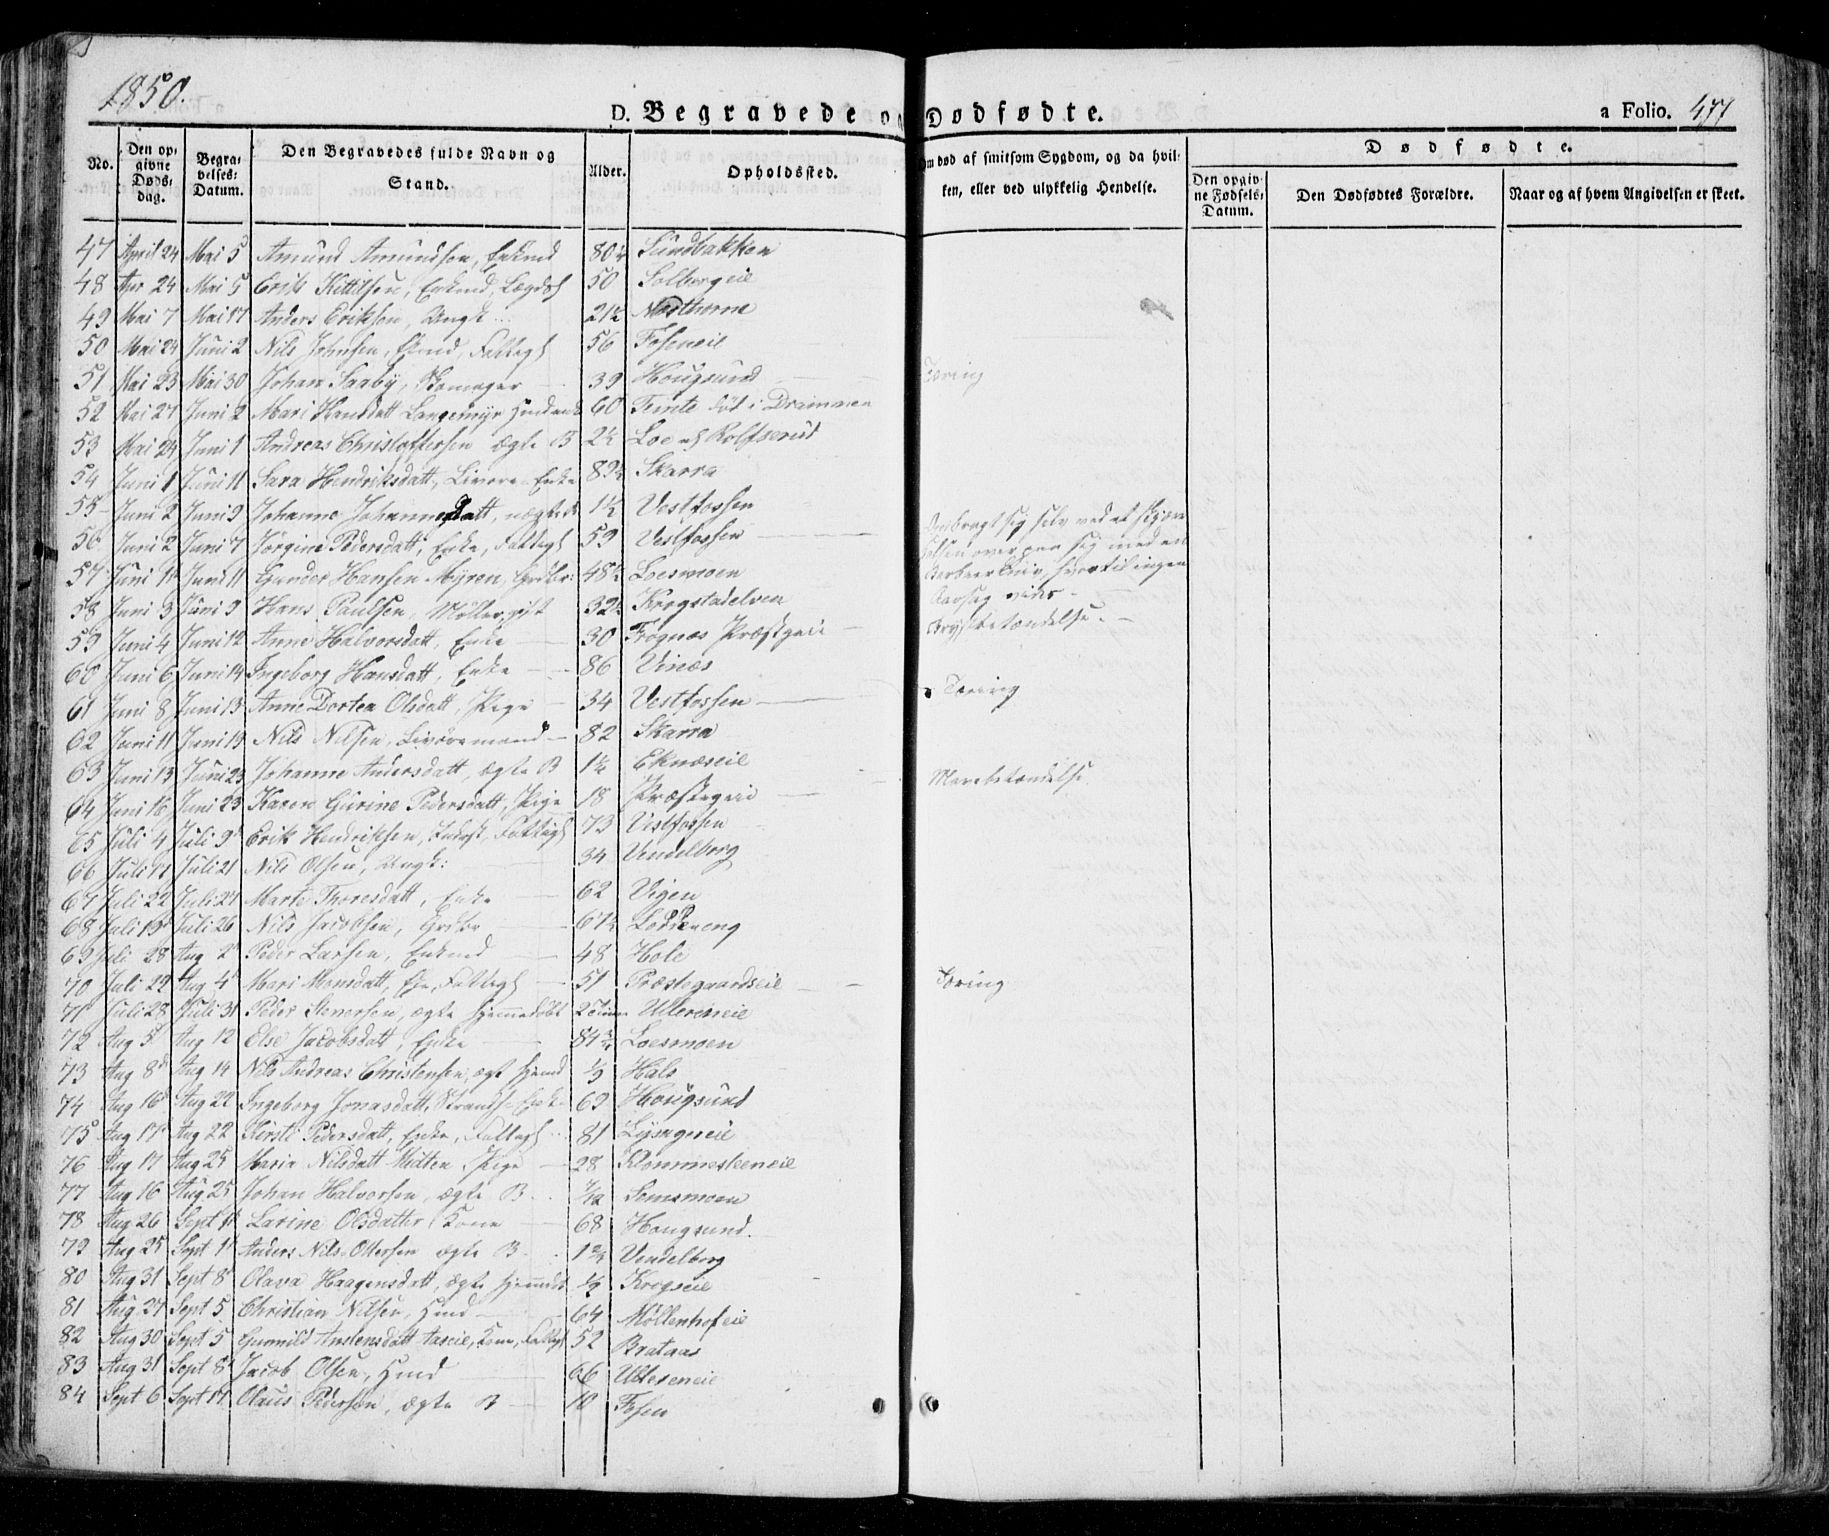 1850.
D. Begravede og Dødfødte.
a Folio. 477
No. Den opgivne Dødsdag. Begravelses-Datum. Den Begravedes fulde Navn og Stand. Alder. Opholdssted. Om død af smitsom Sygdom, og da hvilken, eller ved ulykkelig Hendelse. Dødfødte.
Den opgivne Fødsels-Datum. Den Dødfødtes Forældre. Naar og af hvem Angivelsen er skeet.
47 April 24 Mai 5 Amund Amundsen, Enkmd 80½ Sundbakken
48 Apr 24 Mai 5 Erik Kittilsen, Enkmd, Lægdsl 50 Solbergeie
49 Mai 7 Mai 17 Anders Eriksen, Ungk 21½
50 Mai 24 Juni 2 Nils Johnsen, Fattigl 56 Foseneie
51 Mai 23 Mai 30 Johan Saaby, Skomager 39 Hougsund Tæring
52 Mai 27 Juni 2 Mari Hansdatt Langemyr 60 Temte død i Drammen
53 Mai 24 Juni 1 Andreas Christoffersen ægte B 2½ Loe af Rolfserud
54 Juni 1 Juni 11 Sara Hendriksdatt, Livøre-Enke 89½ Skarra
55 Juni 2 Juni 9 Johanne Johannesdatt, uægte B 1½ Vestfossen
56 Juni 2 Juni 7 Jørgine Pedersdatt, Enke, Fattigl 59 Vestfossen Ombragt sig selv ved at skjære
57 Juni 1 Juni 11 Gunder Hansen Myren, Grdbr: 48½ Loesmoen Halsen over paa sig med en Barbeerkniv, hvortil ingen
58 Juni 3 Juni 9 Hans Paulsen, Møller, gift 32½ Krogstadelven Aarsag vides -
59 Juni 4 Juni 12 Anne Halvorsdatt, Enke 30 Fognæs Præstgeie Brystbetændelse. -
60 Juni 6 Juni 14 Ingeborg Hansdatt, Enke 86 Vinæs
61 Juni 8 Juni 13 Anne Dortea Olsdatt, Pige 34 Vestfossen Tæring
62 Juni 11 Juni 19 Nils Nilsen, Livøremand 82 Skarra
63 Juni 13 Juni 23 Johanne Andersdatt, ægte B 1¼ Eknæseie
64 Juni 16 Juni 23 Karen Gurine Pedersdatt, Pige 18 Præstegeie Mavebetændelse
65 Juli 4 Juli 9 Erik Hendriksen, Inderst, Fattigl 73 Vestfossen
66 Juli 14 Juli 21 Nils Olsen, Ungk: 34 Vendelborg
67 Juli 22 Juli 27 Marte Thoresdatt, Enke 62 Vigen
68 Juli 19 Juli 26 Nils Jacobsen, Grdbr 67½ Loddeneng
69 Juli 28 Aug 2 Peder Larsen, Enkmd 48 Hole
70 Juli 22 Aug 4 Mari Monsdatt, Fattigl 51 Præstegaardseie Tæring
71 Juli 28 Juli 31 Peder Stenersen, ægte hjemmedøbt 2 Timer Ulleneneie
72 Aug 5 Aug 12 Else Jacobsdatt, Enke 84¾ Loesmoen
73 Aug 8 Aug 14 Nils Andreas Christensen, ægt hjemd ⅓ Hals
74 Aug 16 Aug 22 Ingeborg Jonasdatt, Strands-Enke 69 Hougsund
75 Aug 17 Aug 22 Kirsti Pedersdatt, Enke, Fattigl 81
76 Aug 17 Aug 25 Maria Nilsdatt Midten, Pige 28 Klommesteeneie
77 Aug 16 Aug 25 Johan Halvorsen, ægte B. 7/12 Semsmoen
78 Aug 26 Sept 1 Larine Olsdatter, Kone 68 Hougsund.
79 Aug 25 Sept 1 Anders Nils. Ottersen ægte B. 1¾ Vendelborg
80 Aug 31 Sept 8 Olava Haagensdatt, ægte hjemdbt ½ Krogseie
81 Aug 27 Sept 5 Christian Nilsen, Hmd 64 Møllenhofeie
82 Aug 30 Sept 5 Gunnild Anstensdatt Aaseie, Kone, Fattigl 52 Brataas
83 Aug 31 Sept 8 Jacob Olsen, Hmd 66 Ulleneneie
84 Sept 6 Sept 17 Olaus Pedersen, ægte B 10 Fosen